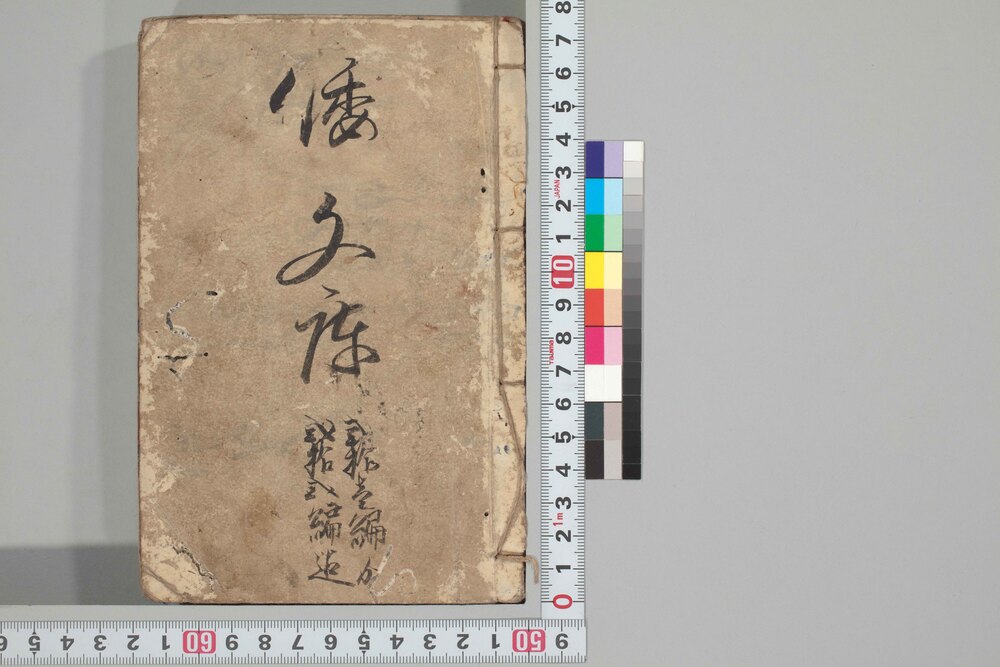 倭文庫
弐拾壱編ゟ
弐拾弐編迠
8
7
6
5
4
3
JAPAN
2
1
10
9
8
7
6
5
4
3
2
1m
1
0
6 5 4 3 2 1 60 9 8 7 6 5 4 3 2 1 50 9